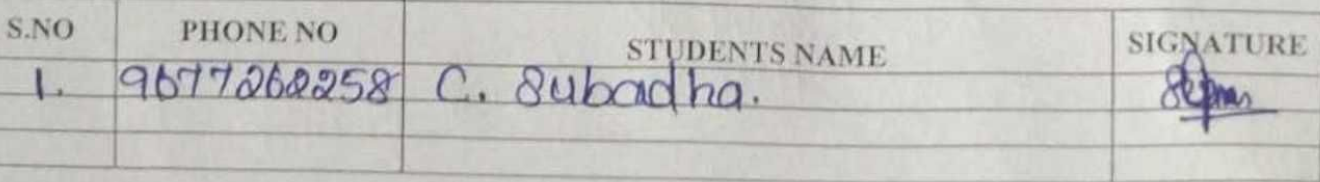 S.NO PHONE NO STUDENTS NAME SIGNATURE
1. 9677262258 C. Subadha.